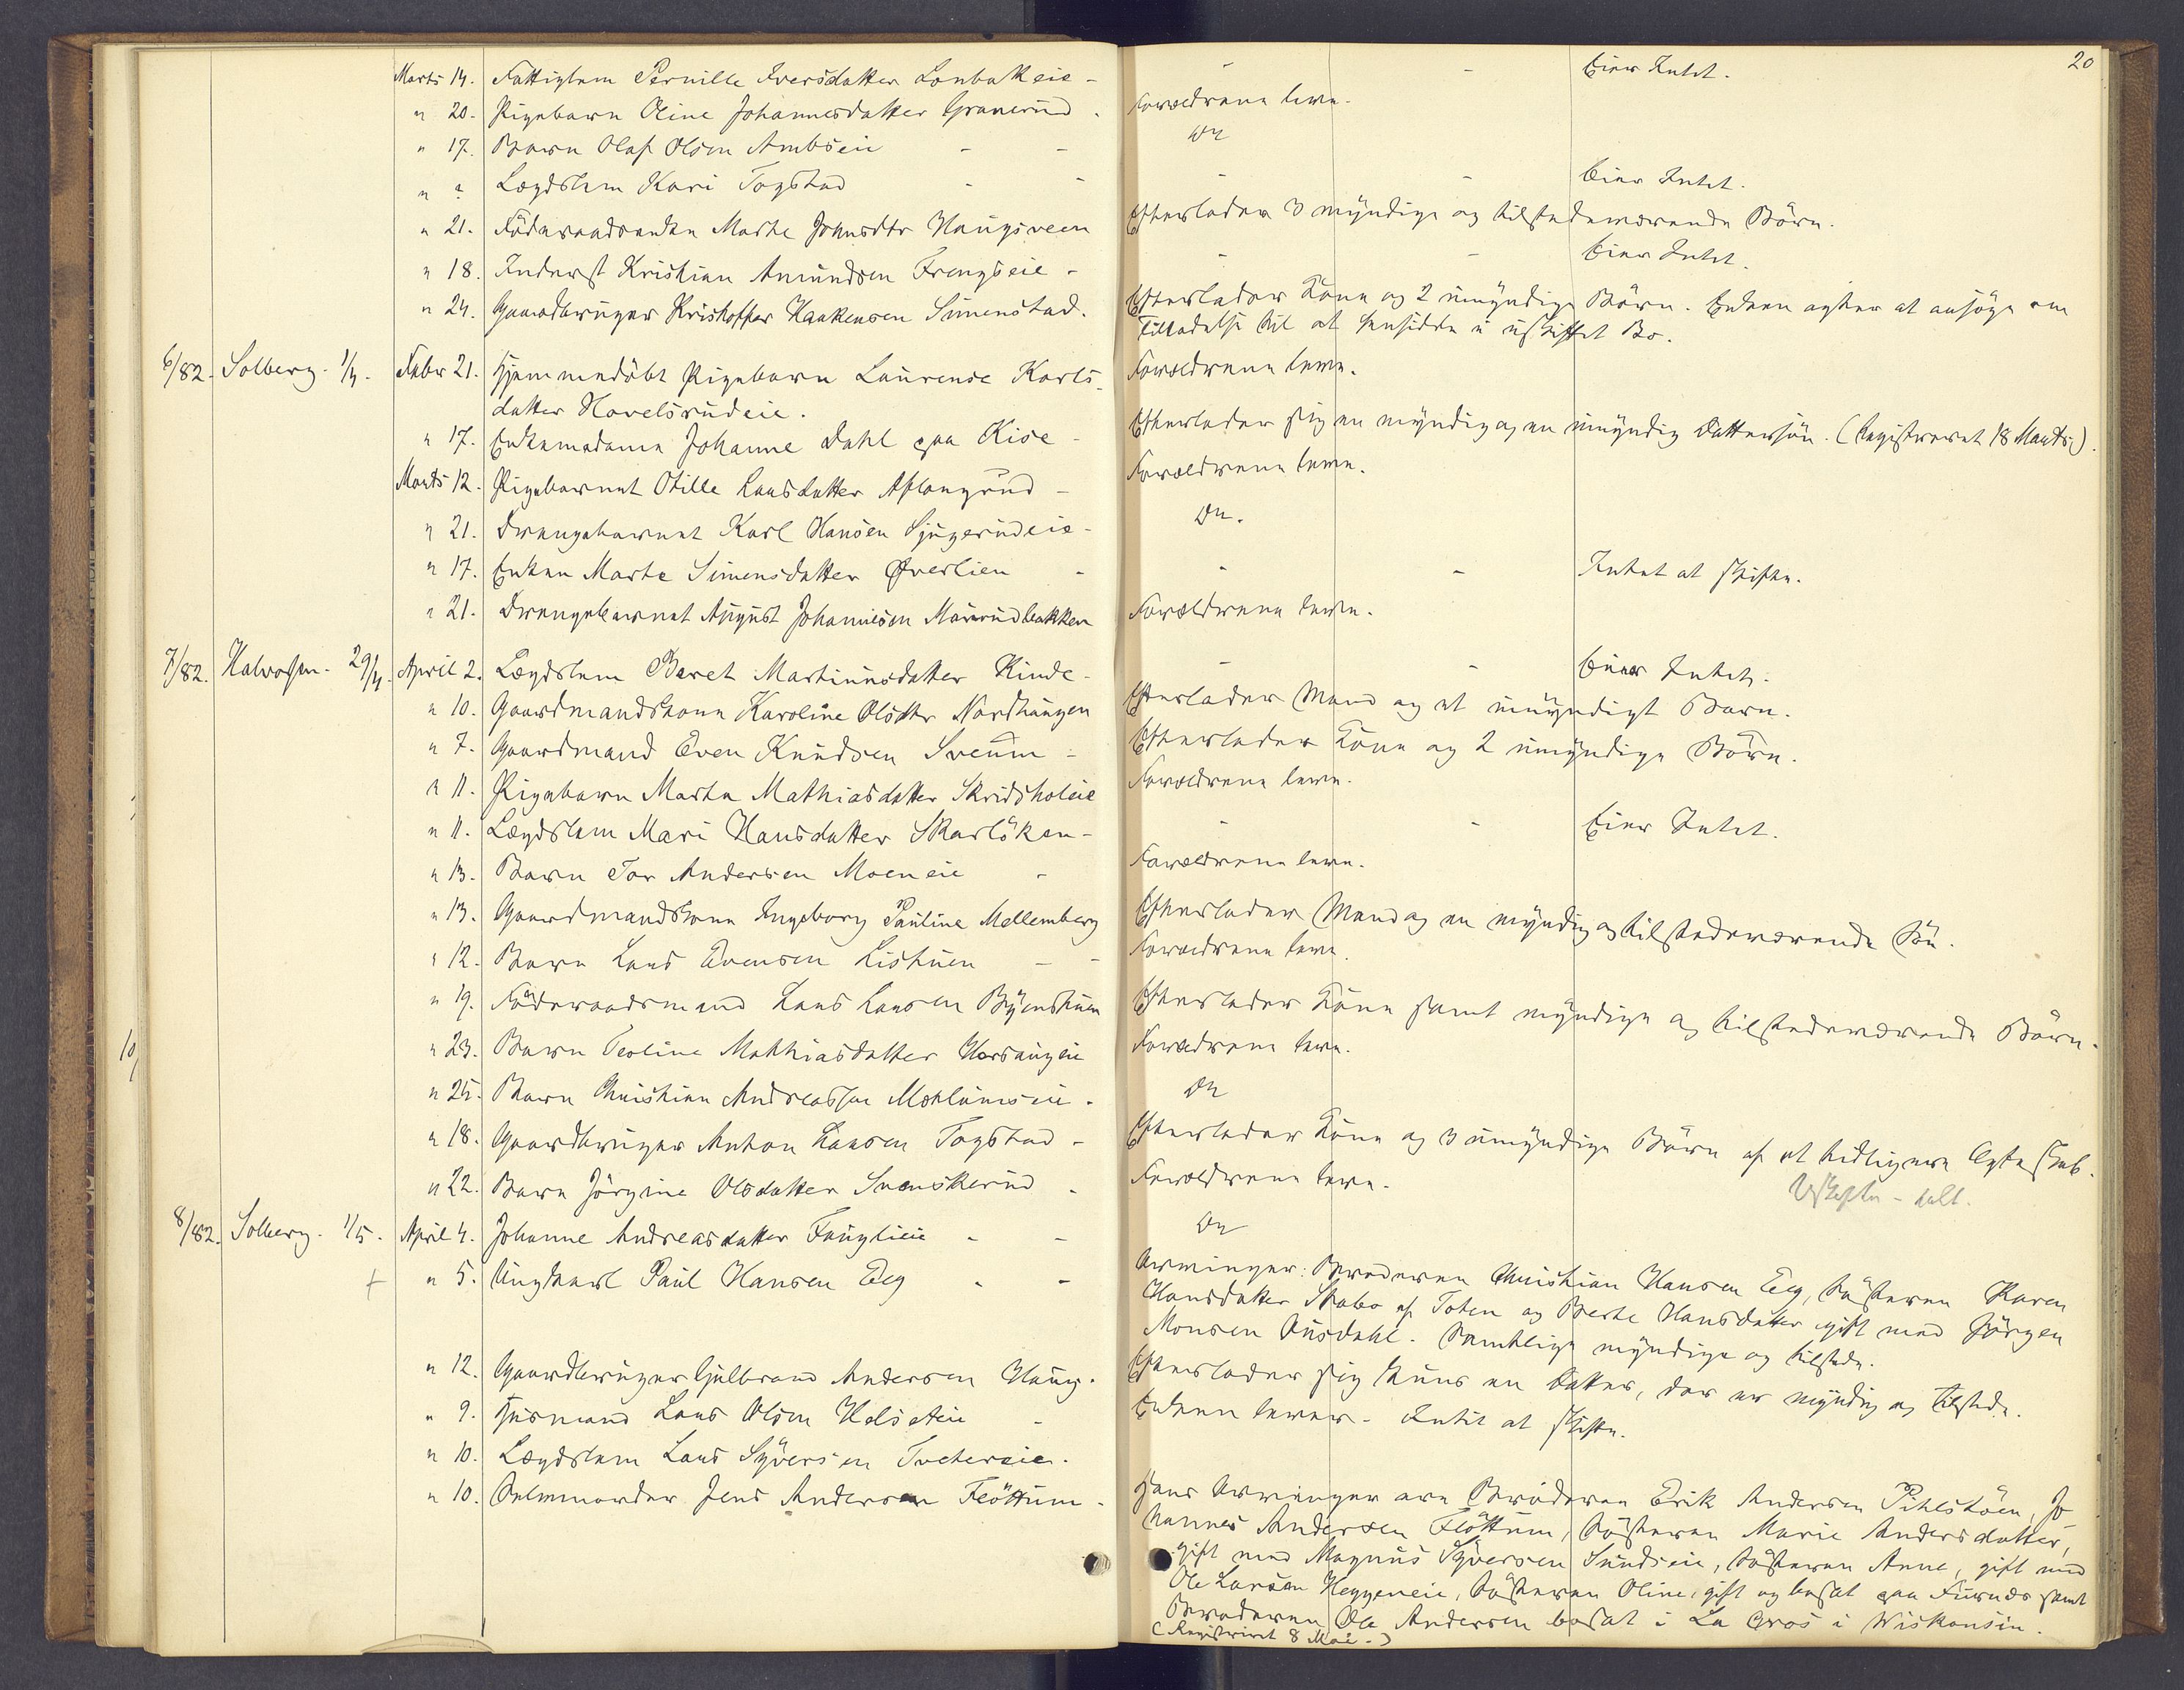 20
Marts 14. Fattiglem Pernille Iversdatter Lonbakeie - - - Eier Intet.
" 20. Pigebarn Oline Johannesdatter Granerud. Forældrene leve.
" 17. Barn Olaf Olsen Ambseie - - Do
" " Lægdslem Kari Togstad - - - - Eier Intet.
" 21. Föderaadsenken Marthe Johnsdtr Haugsveen Efterlader 3 myndige og tilstedeværende Börn.
" 18. Inderst Kristian Amundsen Frengseie - - - Eier Intet.
" 24. Gaardbruger Kristoffer Haakensen Simenstad. Efterlader Kone og 2 umyndige Börn. Enken agter at ansöge om
Tilladelse til at hensidde i uskiftet Bo.
6/82. Solberg. 1/4. Febr 21. Hjemmedöbt Pigebarn Laurense Karls- Forældrene leve.
datter Hovelsrudeie.
" 17. Enkemadame Johanne Dahl paa Kise - Efterlader sig en myndig og en umyndig Dattersön. (Registreret 18 Marts.)
Marts 12. Pigebarnet Otille Larsdatter Aflangrud - Forældrene leve.
" 21. Drengebarnet Karl Hansen Sjugerudeie - Do.
" 17. Enken Marte Simensdatter Øverlien - - - Intet at skifte.
" 21. Drengebarnet August Johannesen Maurudbakken Forældrene leve.
7/82. Halvorsen. 29/4. April 2. Lægdslem Beret Martinusdatter Kinde - - - Eier Intet.
" 10. Gaardmandskone Karoline Olsdtr Nordhaugen Efterlader Mand og et umyndigt Barn.
" 7. Gaardmand Even Knudsen Sveum - Efterlader Kone og 2 umyndige Börn.
" 11. Pigebarn Marte Mathiasdatter Skridsholeie Forældrene leve.
" 11. Lægdslem Mari Hansdatter Skarlöken - - - Eier Intet.
" 13. Barn Tor Andersen Moeneie - Forældrene leve.
" 13. Gaardmandskone Ingeborg Pauline Mellemberg Efterlader Mand og en myndig og tilstedeværende Sön.
" 12. Barn Lars Evensen Listuen - - Forældrene leve.
" 19. Föderaadsmand Lars Larsen Byenstuen Efterlader Kone samt myndige og tilstedeværende Börn.
" 23. Barn Teoline Mathiasdatter Horsaugeie Forældrene leve.
" 25. Barn Christian Andreassen Mohlumseie. Do
" 18. Gaardbruger Anton Larsen Togstad - Efterlader Kone og 3 umyndige Börn af et tidligere Ægteskab.
" 22. Barn Jörgine Olsdatter Svenskerud - Forældrene leve.
8/82. Solberg. 1/5. April 4. Johanne Andreasdatter Fauglieie - - Do
" 5. Ungkarl Paul Hansen Eeg - - Arvinger: Broderen Christian Hansen Eeg, Sösteren Karen
Hansdatter Skabo af Toten og Berte Hansdatter gift med Jörgen
Monsen Ausdahl. Samtlige myndige og tilstede.
" 12. Gaardbruger Gulbrand Andersen Haug. Efterlader sig kuns en Datter, der er myndig og tilstede.
" 9. Husmand Lars Olsen Helseteie - Enken lever. Intet at skifte.
" 10. Lægdslem Lars Syversen Tvetereie.
" 10. Jens Andersen Flöttum. Hans Arvinger ere Bröderne Erik Andersen Pihlstöen, Jo
hannes Andersen Flöttum, Sösteren Marie Andersdatter,
gift med Magnus Syversen Sundseie, Sösteren Anne, gift med
Ole Larsen Heggeneie, Sösteren Oline, gift og bosat paa Furnæs samt
Broderen Ole Andersen bosat i La Cros i Wiskonsin.
(Registreret 8 Mai.)